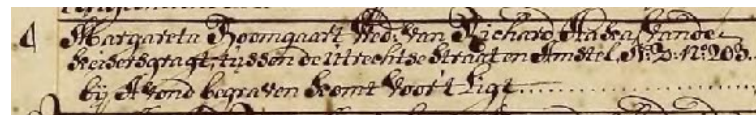 4 Margareta Boomgaart Wed: van Richard Aadea, vande
Keisersgragt, tussen de Utrechtse Straat en Amstel, N: 203.
bij Avond begraven komt voor't Ligt